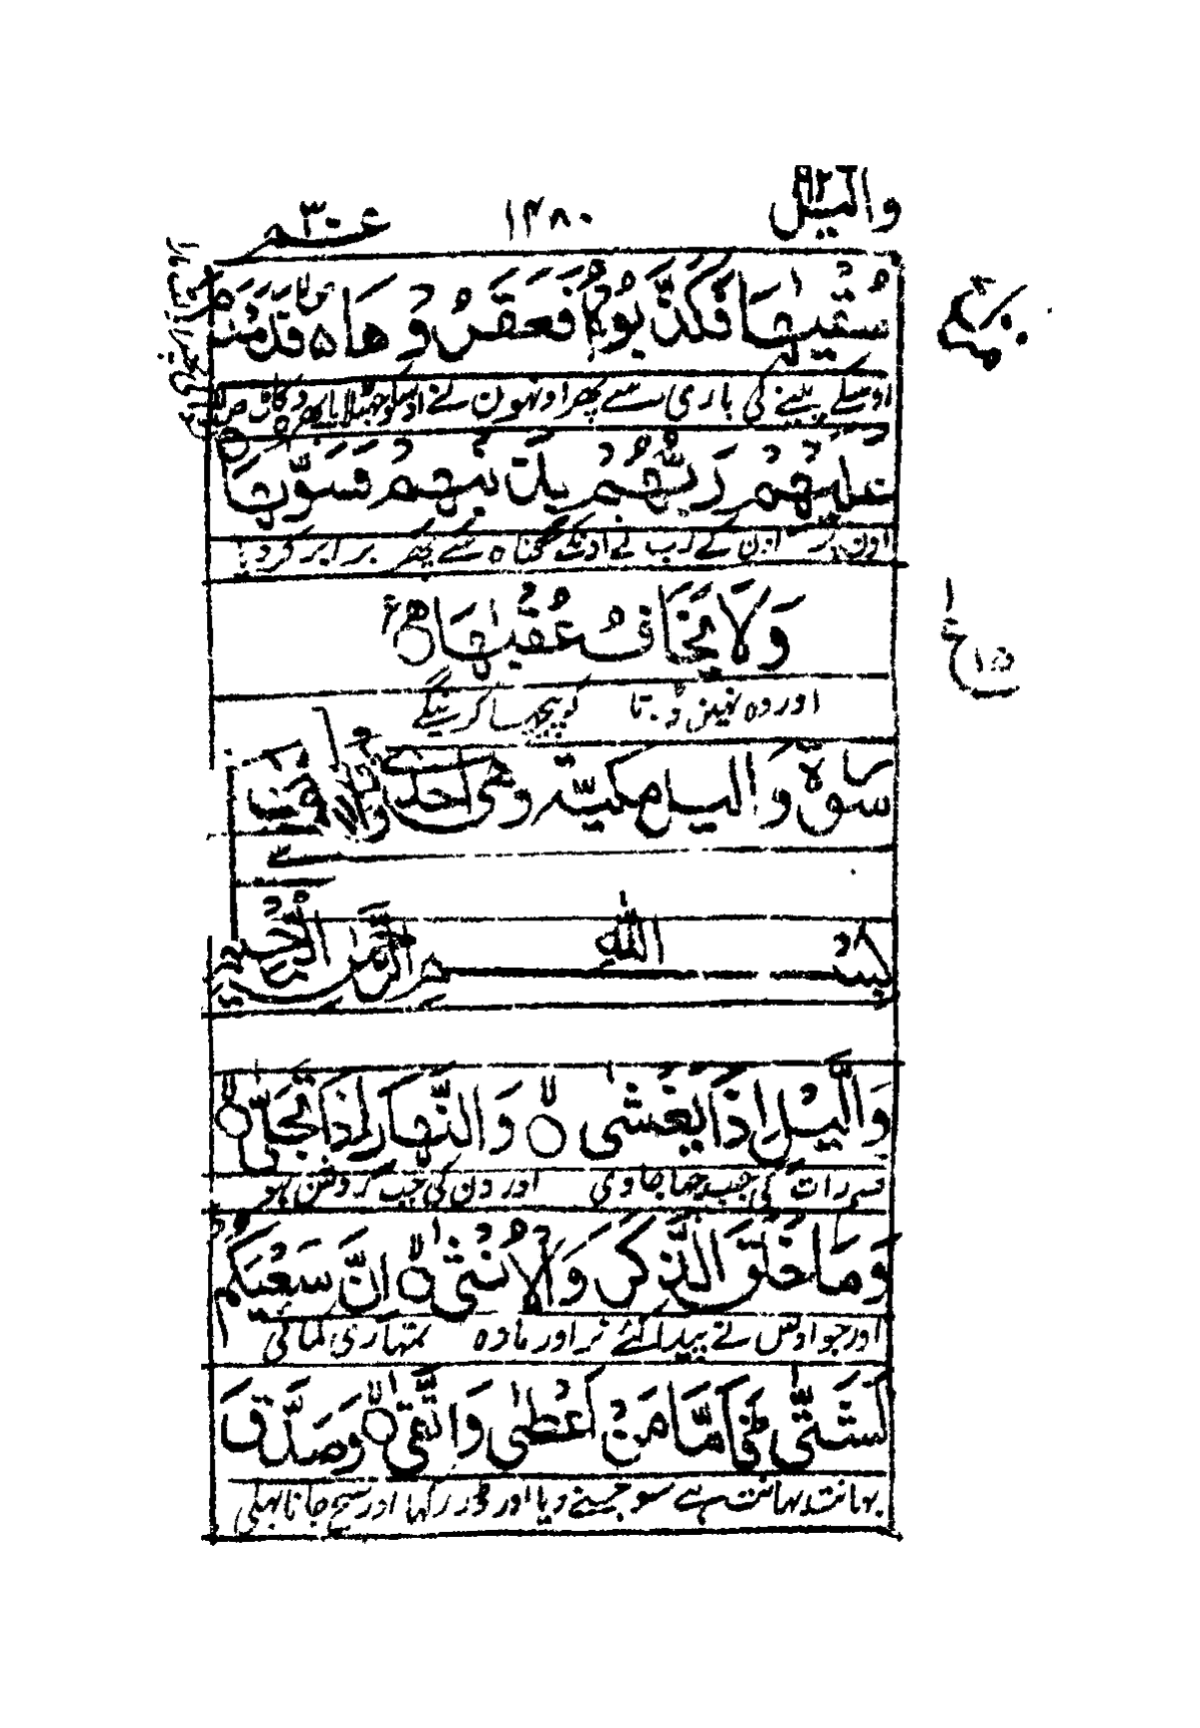 واليل ٩٢
١٤٨٠
عم ٣٠
سُقْيٰهَا فَكَذَّبُوْهُ فَعَقَرُوْهَا ۵ فَدَمْدَمَ
اوسکے پینے کی باری سے پھر اونہون نے اوسکو جھٹلایا پھر وہ کاٹ
عَلَيْهِمْ رَبُّهُمْ بِذَنْۢبِهِمْ فَسَوّٰىهَا
اون پر اون کے رب نے اونکے گناہ سے پھر برابر کردیا
وَلَا يَخَافُ عُقْبٰهَا
اور وہ نہین ڈرتا کہ پیچھا کرینگے
سورة واليل مكية وهي احدى
بسم الله الرحمن الرحيم
وَالَّيْلِ اِذَا يَغْشٰى ۙ وَالنَّهَارِ اِذَا تَجَلّٰى ۙ
قسم رات کی جب چھا جاوی اور دن کی جب روشن ہو
وَمَا خَلَقَ الذَّكَرَ وَالْاُنْثٰى ۙ اِنَّ سَعْيَكُمْ
اور جو اوس نے پیدا کئے نر اور مادہ تمہاری کمائی
لَشَتّٰى ؕ فَاَمَّا مَنْ اَعْطٰى وَاتَّقٰى ۙ وَصَدَّقَ
بہانت بہانت ہے سو جسنے دیا اور ڈر رکہا اور سچ جانا بہلی